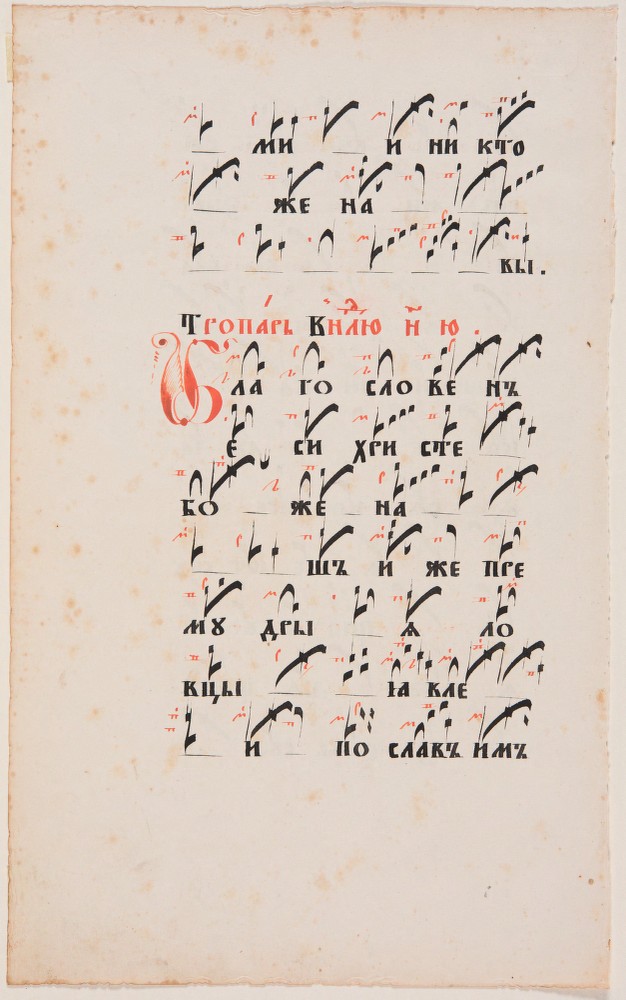 ми и ни кто
же на
вы.
Тропарь
ла го сло ве нъ
е си хри сте
бо же на
шъ и же пре
му дры ѧ ло
вцы ꙗ вле
и по славъ имъ